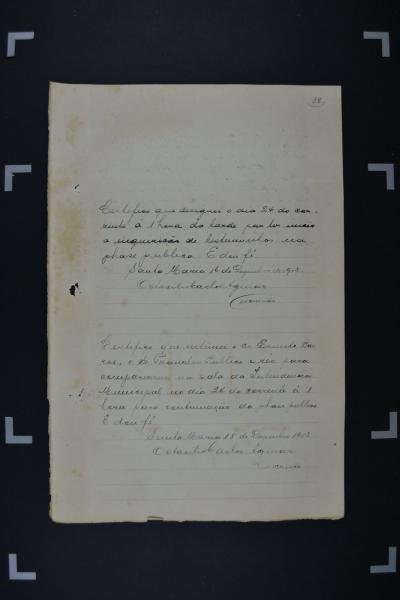 38
Certifico que designei o dia 24 do cor-
rente á 1 hora da tarde para ter inicio
a inquirição de testemunhas na
phase publica. E dou fé.
Santa Maria 16 de Dezembro de 1913.
Aguiar
Certifico que intimei o
res, o Dr Promotor Publico e réo para
comparecerem na sala da Intendencia
Municipal no dia 24 do corrente á 1
hora para continuação da phase publica
E dou fé.
Santa Maria 18 de Dezembro 1913
Aguiar